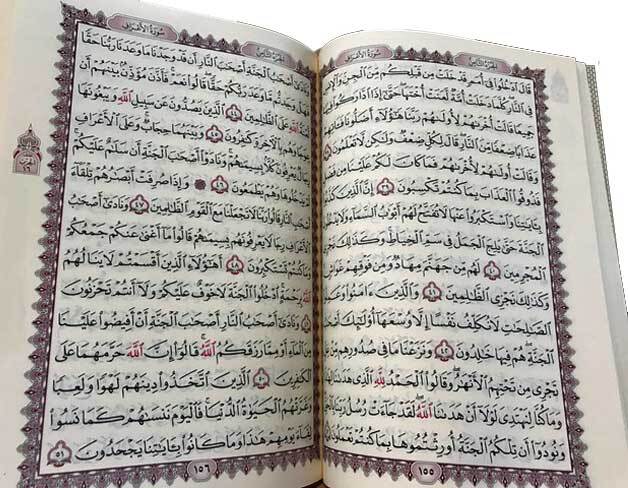 الجزء الثامن
سورة الأعراف
قَالَ ادْخُلُوا فِي أُمَمٍ قَدْ خَلَتْ مِن قَبْلِكُم مِّنَ الْجِنِّ وَالْإِنسِ
فِي النَّارِ كُلَّمَا دَخَلَتْ أُمَّةٌ لَّعَنَتْ أُخْتَهَا حَتَّىٰ إِذَا ادَّارَكُوا فِيهَا
جَمِيعًا قَالَتْ أُخْرَاهُمْ لِأُولَاهُمْ رَبَّنَا هَٰؤُلَاءِ أَضَلُّونَا فَآتِهِمْ
عَذَابًا ضِعْفًا مِّنَ النَّارِ قَالَ لِكُلٍّ ضِعْفٌ وَلَٰكِن لَّا تَعْلَمُونَ ٣٨
وَقَالَتْ أُولَاهُمْ لِأُخْرَاهُمْ فَمَا كَانَ لَكُمْ عَلَيْنَا مِن فَضْلٍ
فَذُوقُوا الْعَذَابَ بِمَا كُنتُمْ تَكْسِبُونَ ٣٩ إِنَّ الَّذِينَ كَذَّبُوا
بِآيَاتِنَا وَاسْتَكْبَرُوا عَنْهَا لَا تُفَتَّحُ لَهُمْ أَبْوَابُ السَّمَاءِ وَلَا يَدْخُلُونَ
الْجَنَّةَ حَتَّىٰ يَلِجَ الْجَمَلُ فِي سَمِّ الْخِيَاطِ وَكَذَٰلِكَ نَجْزِي
الْمُجْرِمِينَ ٤٠ لَهُم مِّن جَهَنَّمَ مِهَادٌ وَمِن فَوْقِهِمْ غَوَاشٍ
وَكَذَٰلِكَ نَجْزِي الظَّالِمِينَ ٤١ وَالَّذِينَ آمَنُوا وَعَمِلُوا
الصَّالِحَاتِ لَا نُكَلِّفُ نَفْسًا إِلَّا وُسْعَهَا أُولَٰئِكَ أَصْحَابُ
الْجَنَّةِ هُمْ فِيهَا خَالِدُونَ ٤٢ وَنَزَعْنَا مَا فِي صُدُورِهِم مِّنْ غِلٍّ
تَجْرِي مِن تَحْتِهِمُ الْأَنْهَارُ وَقَالُوا الْحَمْدُ لِلَّهِ الَّذِي هَدَانَا لِهَٰذَا
وَمَا كُنَّا لِنَهْتَدِيَ لَوْلَا أَنْ هَدَانَا اللَّهُ لَقَدْ جَاءَتْ رُسُلُ رَبِّنَا بِالْحَقِّ
وَنُودُوا أَن تِلْكُمُ الْجَنَّةُ أُورِثْتُمُوهَا بِمَا كُنتُمْ تَعْمَلُونَ ٤٣
١٥٥
الجزء الثامن
سورة الأعراف
وَنَادَىٰ أَصْحَابُ الْجَنَّةِ أَصْحَابَ النَّارِ أَن قَدْ وَجَدْنَا مَا وَعَدَنَا رَبُّنَا حَقًّا
فَهَلْ وَجَدتُّم مَّا وَعَدَ رَبُّكُمْ حَقًّا قَالُوا نَعَمْ فَأَذَّنَ مُؤَذِّنٌ بَيْنَهُمْ أَن
لَّعْنَةُ اللَّهِ عَلَى الظَّالِمِينَ ٤٤ الَّذِينَ يَصُدُّونَ عَن سَبِيلِ اللَّهِ وَيَبْغُونَهَا
عِوَجًا وَهُم بِالْآخِرَةِ كَافِرُونَ ٤٥ وَبَيْنَهُمَا حِجَابٌ وَعَلَى الْأَعْرَافِ
رِجَالٌ يَعْرِفُونَ كُلًّا بِسِيمَاهُمْ وَنَادَوْا أَصْحَابَ الْجَنَّةِ أَن سَلَامٌ عَلَيْكُمْ
لَمْ يَدْخُلُوهَا وَهُمْ يَطْمَعُونَ ٤٦ ۞ وَإِذَا صُرِفَتْ أَبْصَارُهُمْ تِلْقَاءَ
أَصْحَابِ النَّارِ قَالُوا رَبَّنَا لَا تَجْعَلْنَا مَعَ الْقَوْمِ الظَّالِمِينَ ٤٧ وَنَادَىٰ أَصْحَابُ
الْأَعْرَافِ رِجَالًا يَعْرِفُونَهُم بِسِيمَاهُمْ قَالُوا مَا أَغْنَىٰ عَنكُمْ جَمْعُكُمْ
وَمَا كُنتُمْ تَسْتَكْبِرُونَ ٤٨ أَهَٰؤُلَاءِ الَّذِينَ أَقْسَمْتُمْ لَا يَنَالُهُمُ
اللَّهُ بِرَحْمَةٍ ادْخُلُوا الْجَنَّةَ لَا خَوْفٌ عَلَيْكُمْ وَلَا أَنتُمْ تَحْزَنُونَ
٤٩ وَنَادَىٰ أَصْحَابُ النَّارِ أَصْحَابَ الْجَنَّةِ أَنْ أَفِيضُوا عَلَيْنَا
مِنَ الْمَاءِ أَوْ مِمَّا رَزَقَكُمُ اللَّهُ قَالُوا إِنَّ اللَّهَ حَرَّمَهُمَا عَلَى
الْكَافِرِينَ ٥٠ الَّذِينَ اتَّخَذُوا دِينَهُمْ لَهْوًا وَلَعِبًا
وَغَرَّتْهُمُ الْحَيَاةُ الدُّنْيَا فَالْيَوْمَ نَنسَاهُمْ كَمَا نَسُوا
لِقَاءَ يَوْمِهِمْ هَٰذَا وَمَا كَانُوا بِآيَاتِنَا يَجْحَدُونَ ٥١
١٥٦